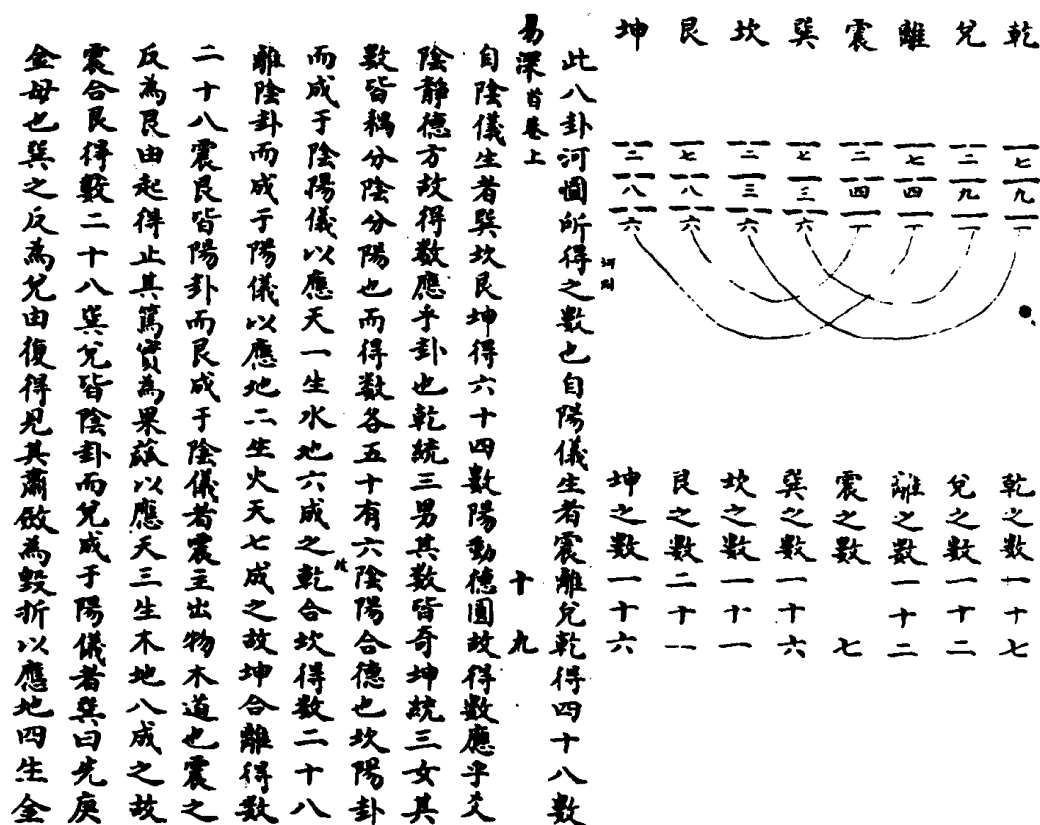 乾 兌 離 震 巽 坎 艮 坤
七 二 七 二 七 二 七 二
九 九 四 四 三 三 八 八
一 一 一 一 六 六 六 六
乾之數一十七
兌之數一十二
離之數一十二
震之數 七
巽之數一十六
坎之數一十一
艮之數二十一
坤之數一十六
此八卦河圖所得之數也自陽儀生者震離兌乾得四十八數
易深首卷上 十九
自陰儀生者巽坎艮坤得六十四數陽動德圓故得數應乎爻
陰靜德方故得數應乎卦也乾統三男其數皆奇坤統三女其
數皆耦分陰分陽也而得數各五十有六陰陽合德也坎陽卦
而成于陰陽儀以應天一生水地六成之乾合坎得數二十八
離陰卦而成于陽儀以應地二生火天七成之故坤合離得數
二十八震艮皆陽卦而艮成于陰儀者震主出物木道也震之
反為艮由起得止其篤實為果蓏以應天三生木地八成之故
震合艮得數二十八巽兌皆陰卦而兌成于陽儀者巽曰先庚
金母也巽之反為兌由復得見其肅斂為毀折以應地四生金